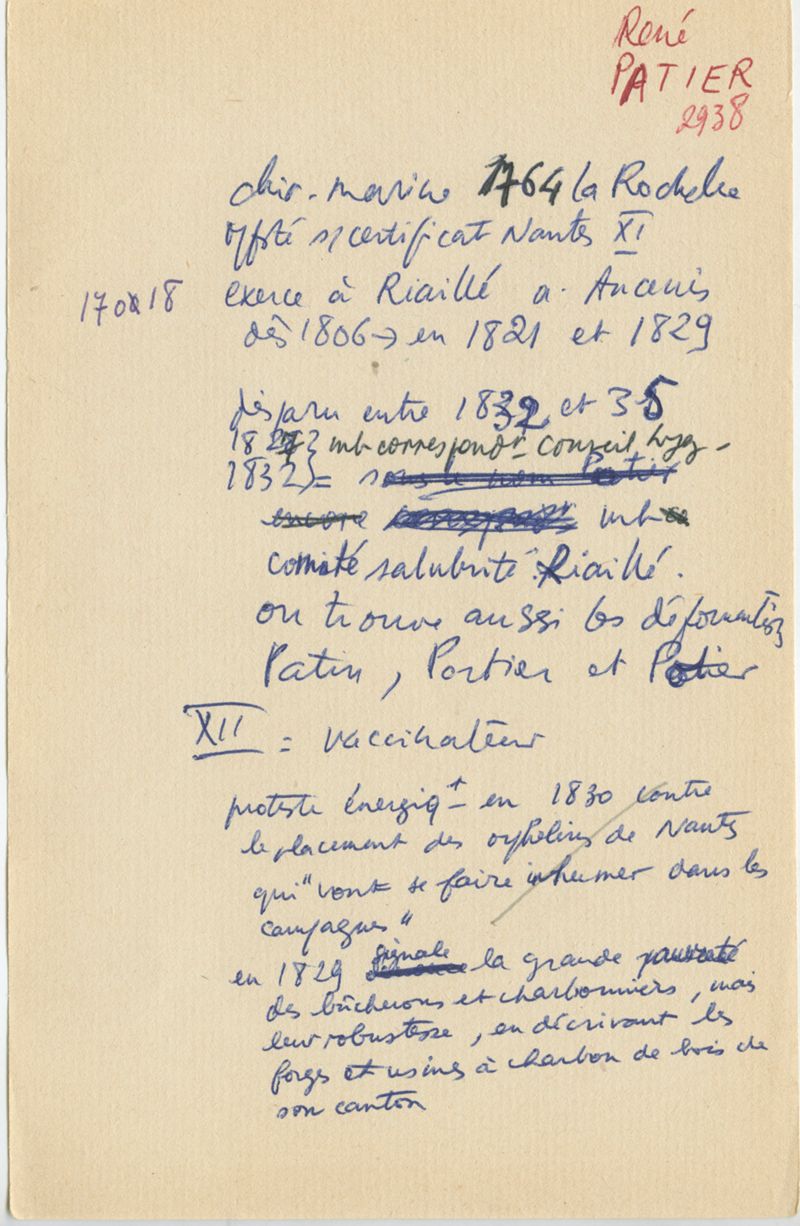 René
PATIER
2938
chir. marine 1764 la Rochelle
offsté s/certificat Nantes XI
exerce à Riaillé a. Ancenis
dès 1806 → en 1821 et 1829
disparu entre 1832 et 35
1827} mb correspondt Conseil hyg
1832} = sous le nom Potier
encore mb
comité salubrité Riaillé.
on trouve aussi les déformations
Patin, Portier et Potier
XII = vaccinateur
proteste énergiqt en 1830 contre
le placement des orphelins de Nantes
qui "vont se faire inhumer dans les
campagnes"
en 1829 signale la grande pauvreté
des bûcherons et charbonniers, mais
leur robustesse, en décrivant les
forges et usines à charbon de bois de
son canton